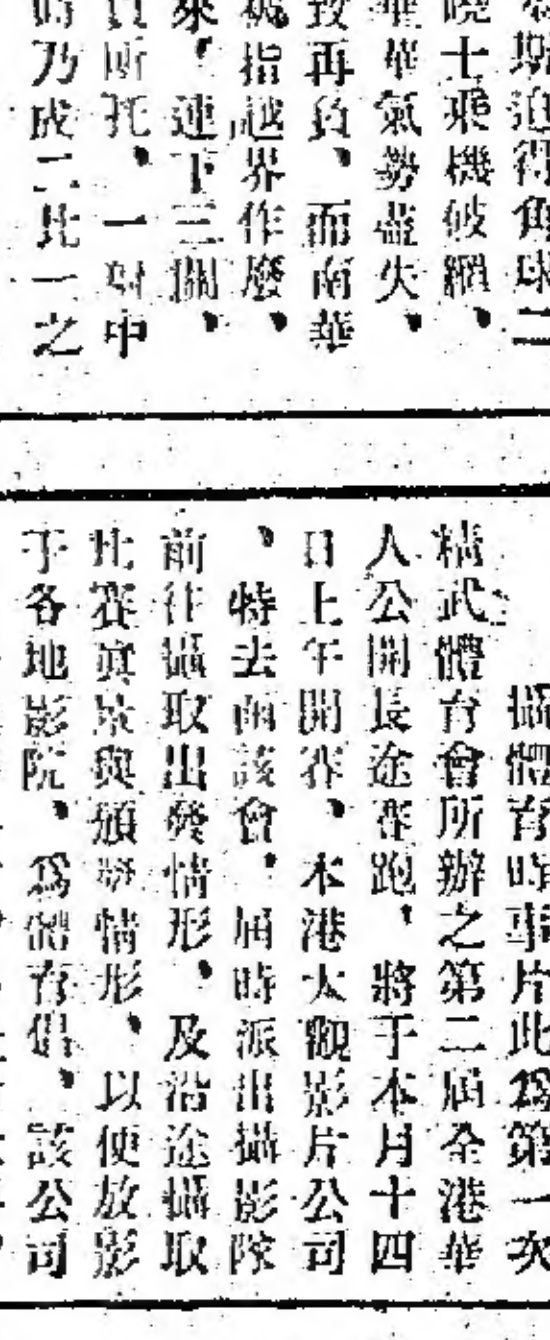 斯迫得角球二
曉士乘機破網、
華華氣勢盡失、
致再負、而南華
指越界作麼、
來、連下三關、
所托、一對中
乃成二比一之
攝體育時事片此爲第一次
精武體育會所辦之第二屆全港華
人公開長途賽跑、將于本月十四
日上午開賽、本港大觀影片公司
、特去函該會、屆時派出攝影隊
前往攝取出發情形、及沿途攝取
比賽眞景與頒獎情形、以便放影
于各地影院、爲體育倡、該公司